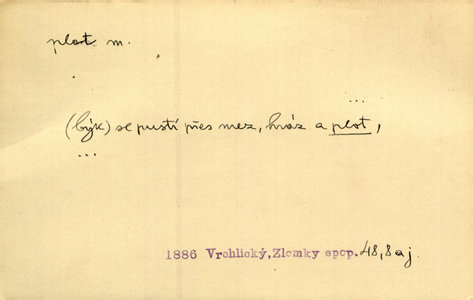 plot m.
...
(býk) se pustí přes mez, hráz a plot,
...
1886 Vrchlický, Zlomky epop. 48, 8 aj.